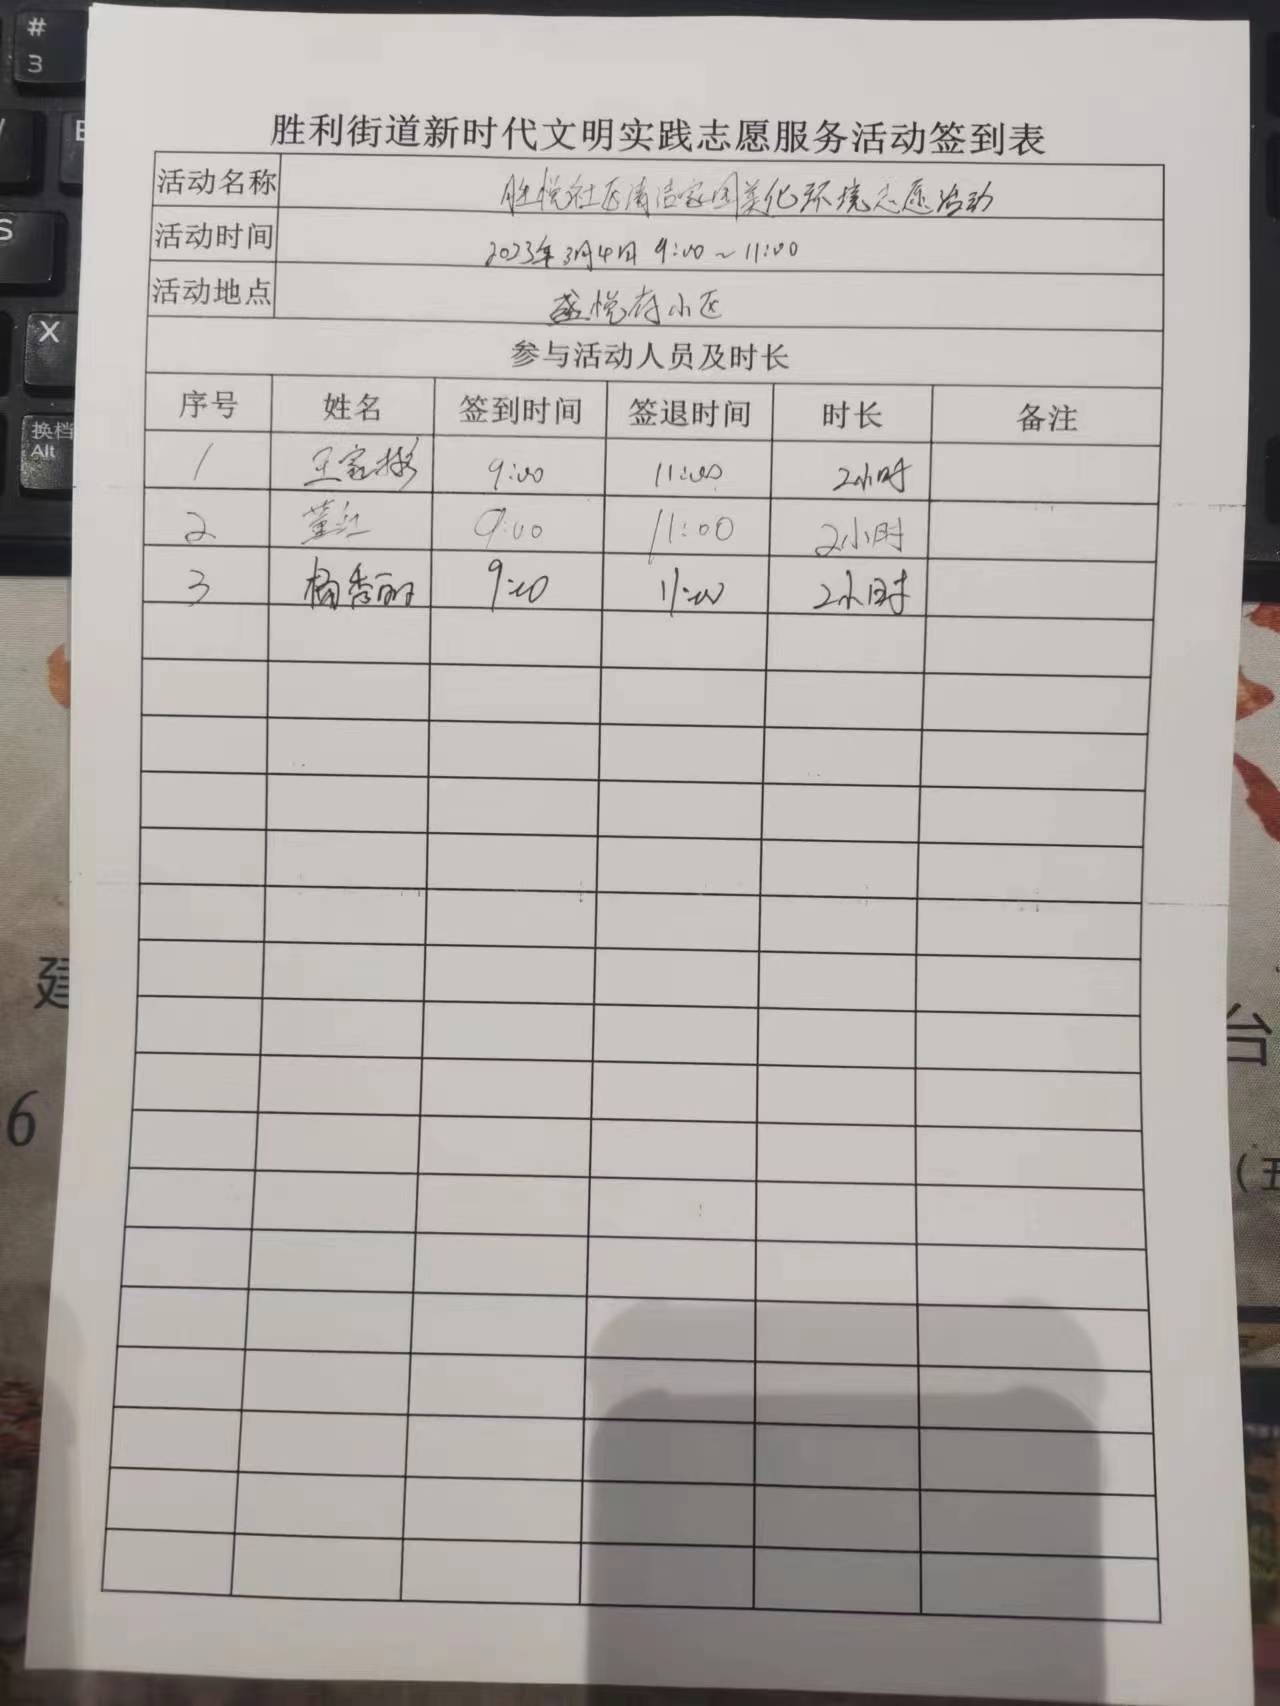 # 3
S
X
换档 Alt
胜利街道新时代文明实践志愿服务活动签到表
活动名称 胜悦社区清洁家园美化环境志愿活动
活动时间 2023年3月4日 9:00~11:00
活动地点 盛悦府小区
参与活动人员及时长
序号 姓名 签到时间 签退时间 时长 备注
1 王家 9:00 11:00 2小时
2 董红 9:00 11:00 2小时
3 杨香丽 9:00 11:00 2小时
建
台
6
(五